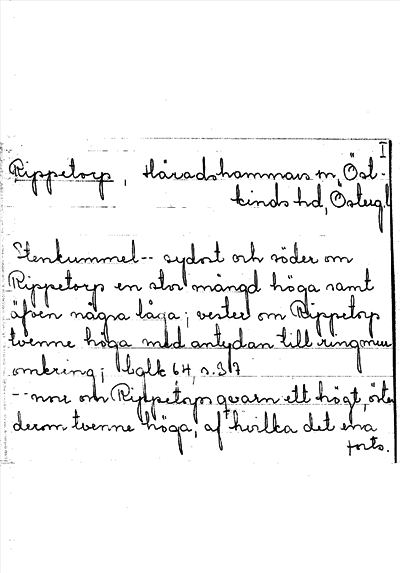 I
Rippetorp, Häradshammars sn, Öst-
kinds hd, Östergl
Stenkummel-- sydost och söder om
Rippetorp en stor mängd höga samt
äfven några låga; vester om Rippetorp
tvenne höga med antydan till ringmur
omkring; bglk 64, s. 37
-- norr om Rippetorps qvarn ett högt, öster
derom tvenne höga, af hvilka det ena
forts.